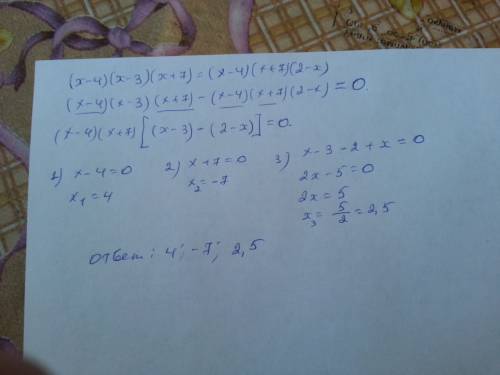 (x-4)(x-3)(x+7)=(x-4)(x+7)(2-x)
(x-4)(x-3)(x+7)-(x-4)(x+7)(2-x)=0.
(x-4)(x+7)[(x-3)-(2-x)]=0.
1) x-4=0
x₁=4
2) x+7=0
x₂=-7
3) x-3-2+x=0
2x-5=0
2x=5
x₃=5/2=2,5
Ответ: 4; -7; 2,5